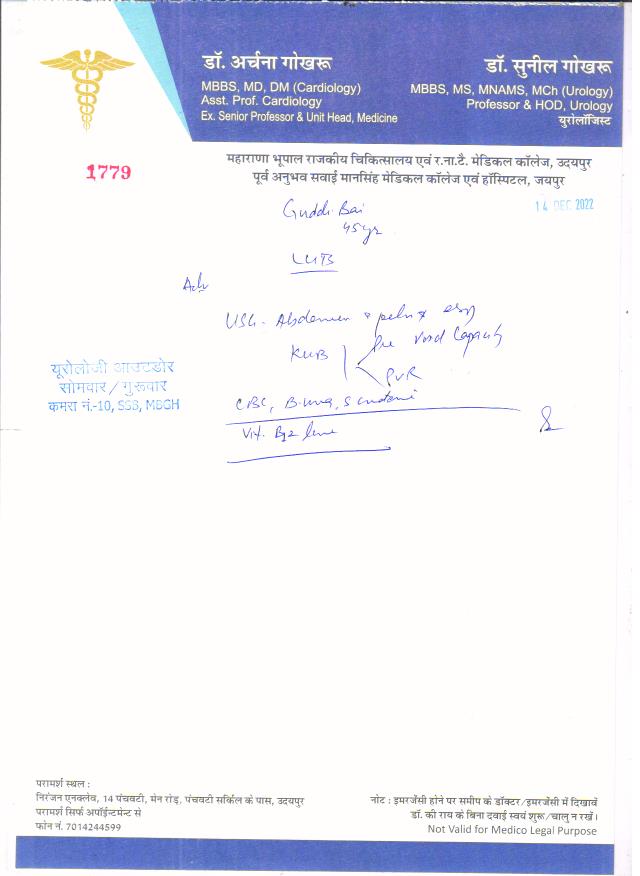 डॉ. अर्चना गोखरू
MBBS, MD, DM (Cardiology)
Asst. Prof. Cardiology
Ex. Senior Professor & Unit Head, Medicine
डॉ. सुनील गोखरू
MBBS, MS, MNAMS, MCh (Urology)
Professor & HOD, Urology
यूरोलॉजिस्ट
महाराणा भूपाल राजकीय चिकित्सालय एवं र.ना.टै. मेडिकल कॉलेज, उदयपुर
पूर्व अनुभव सवाई मानसिंह मेडिकल कॉलेज एवं हॉस्पिटल, जयपुर
1779
14 DEC 2022
Guddi Bai
45yr
LUTS
Adv
USG - Abdomen & pelvis
KUB
Pre Void Capacity
PVR
CBC, B. urea, S creatinine
Vit. B12
यूरोलोजी आउटडोर
सोमवार / गुरूवार
कमरा नं.-10, SSB, MBGH
परामर्श स्थल :
निरंजन एनक्लेव, 14 पंचवटी, मेन रोड़, पंचवटी सर्किल के पास, उदयपुर
परामर्श सिर्फ अपॉईन्टमेन्ट से
फोन नं. 7014244599
नोट : इमरजेंसी होने पर समीप के डॉक्टर/इमरजेंसी में दिखावें
डॉ. की राय के बिना दवाई स्वयं शुरू/चालु न रखें।
Not Valid for Medico Legal Purpose